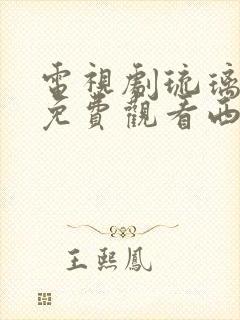 電視劇琉璃
免費觀看西
王熙鳳